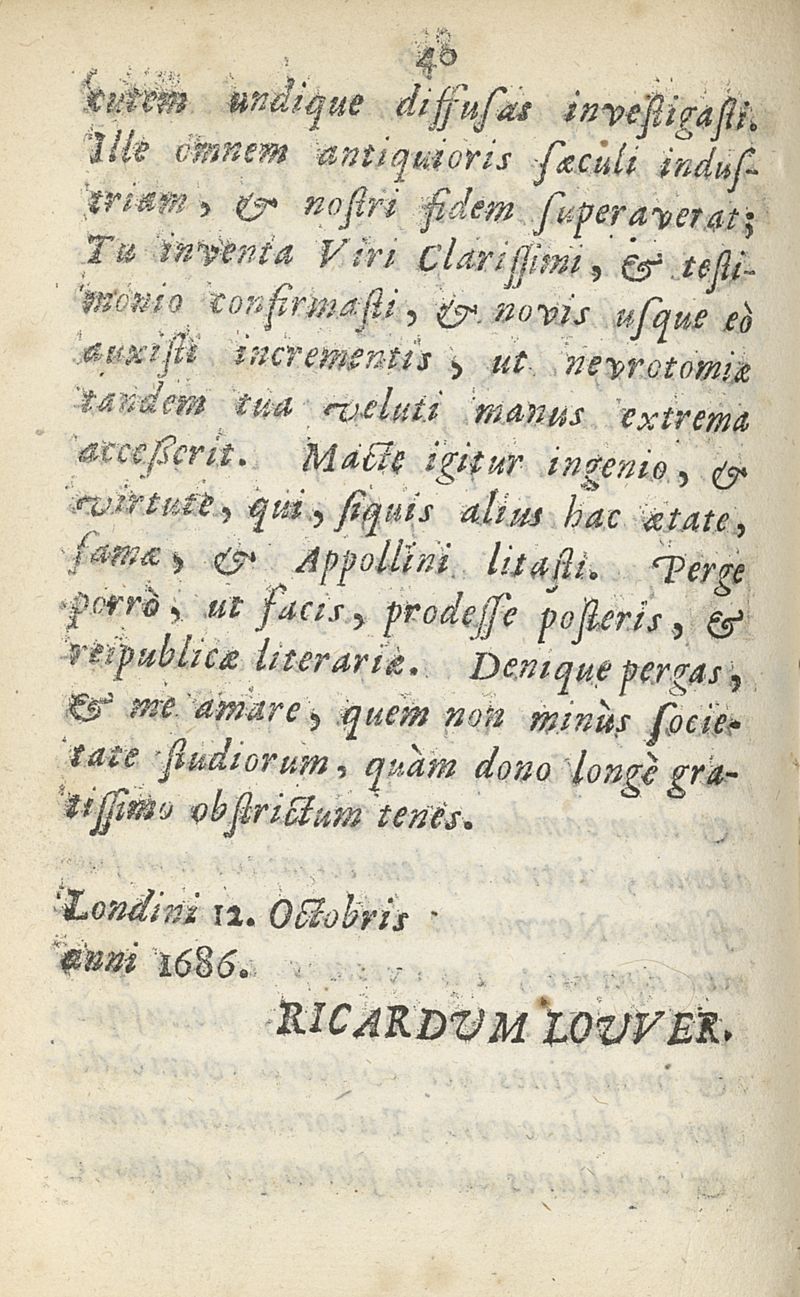 40
cutem undique diffuſas inveſtigaſti.
Ille omnem antiquioris ſæculi induſ-
triam, & noſtri fidem ſuperaverat;
Tu inventa Viri Clariſſimi, & teſti-
monio confirmaſti, & novis uſque eò
auxiſti incrementis, ut nevrotomiæ
tandem tua veluti manus extrema
acceſſerit. Macte igitur ingenio, &
virtute, qui, ſiquis alius hac ætate,
famæ, & Appollini litaſti. Perge
porrò, ut facis, prodeſſe poſteris, &
reipublicæ literariæ. Denique pergas,
& me amare, quem non minùs ſocie-
tate ſtudiorum, quàm dono longè gra-
tiſſimo obſtrictum tenes.
Londini 12. Octobris
anni 1686.
RICARDVM LOUVER.